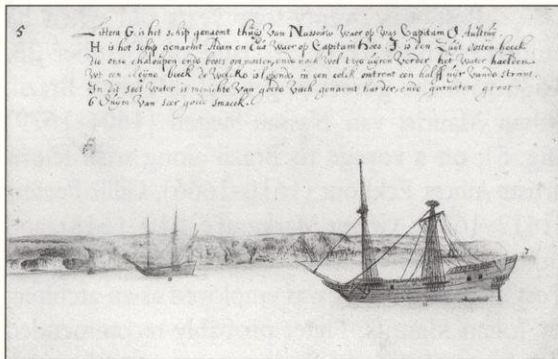 5
Littera G. is het schip genaemt thuijs van Nassouw waer op was Capitain
H is het schip genaemt Adam en Eva waer op Capitain Hoes. I. is den Zuijt oosten hoeck
die onse chaloupen ende boots om moesten, ende noch wel twe uijren verder, het water haelden
wt een cleijne beeck de welcke is lopende in een valeij omtrent een halff uijr vande strant.
In dit soet water is menichte van goede visch genaemt harder, ende garnoten groot
6 duijm van seer goede smaeck.